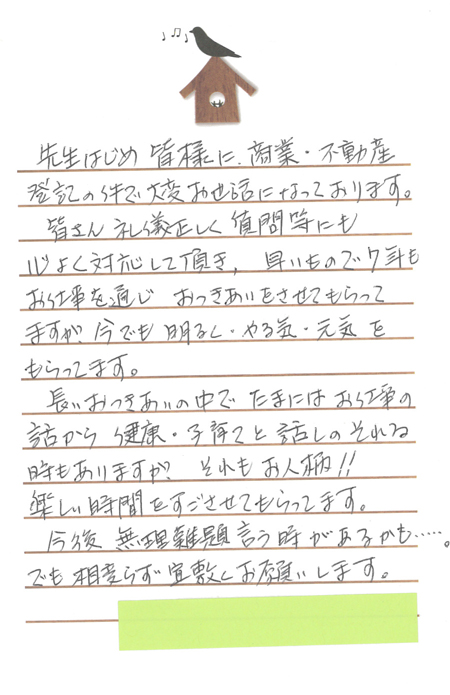 先生はじめ 皆様に、商業・不動産
登記の件で大変お世話になっております。
皆さん 礼儀正しく 質問等にも
心よく対応して頂き、早いもので7年も
お仕事を通じ おつきあいをさせてもらって
ますが、今でも 明るく・やる気・元気 を
もらってます。
長いおつきあいの中で たまには お仕事の
話から 健康・子育てと 話しのそれる
時もありますが? それも お人柄!!
楽しい時間をすごさせてもらってます。
今後 無理難題 言う時があるかも……。
でも 相変らず 宜敷く お願いします。